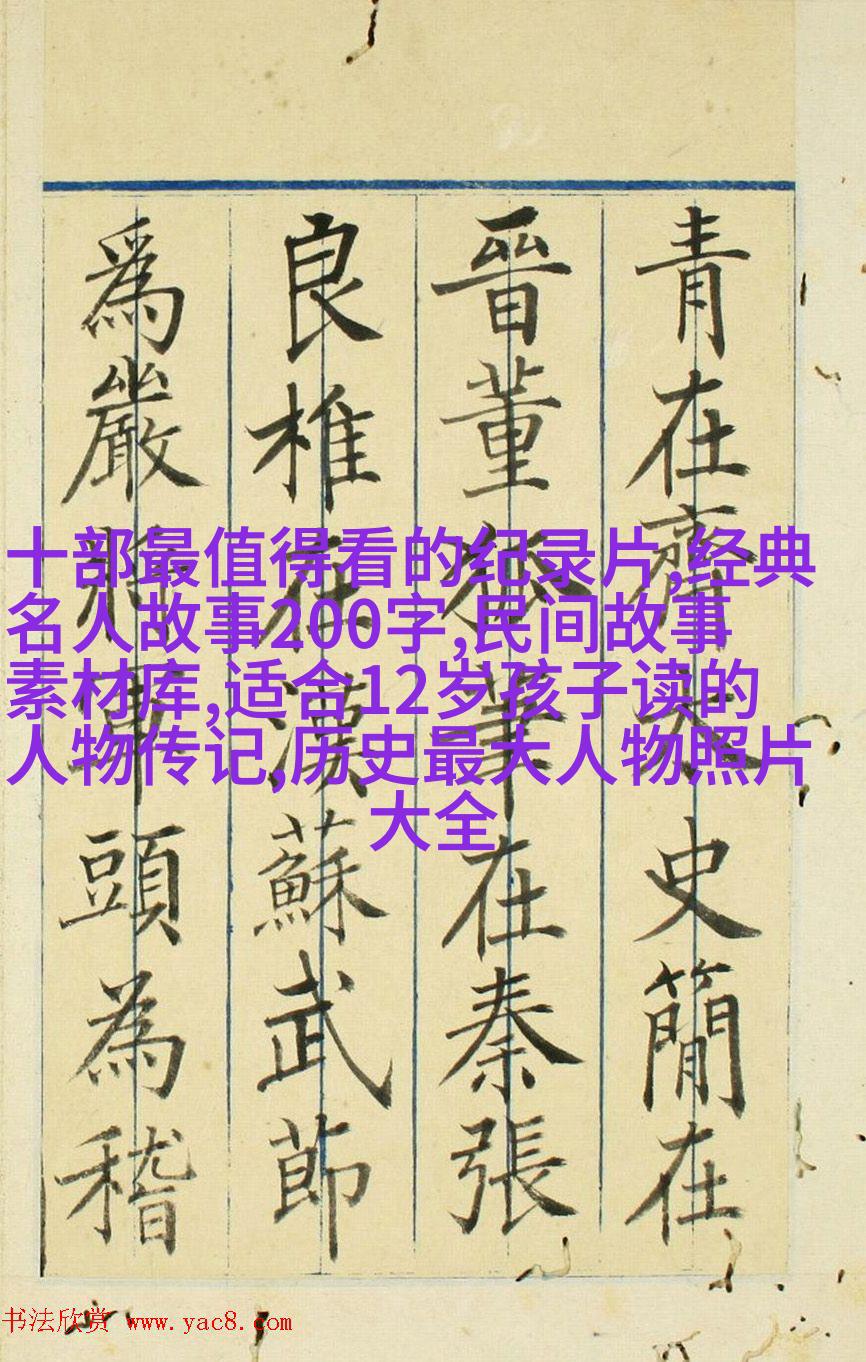 青在齊太史簡在
晉董狐筆在秦張
良椎在漢蘇武節
爲嚴將軍頭為稽
十部最值得看的纪录片,经典
名人故事200字,民间故事
素材库,适合12岁孩子读的
人物传记,历史最大人物照片
大全
书法欣赏 www.yac8.com